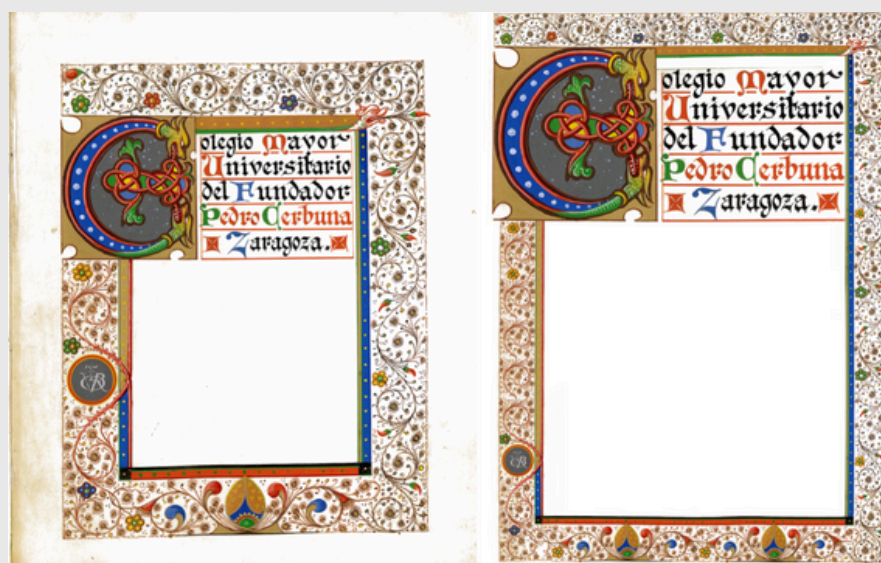 Colegio Mayor
Universitario
del Fundador
Pedro Cerbuna
Zaragoza.
Colegio Mayor
Universitario
del Fundador
Pedro Cerbuna
Zaragoza.